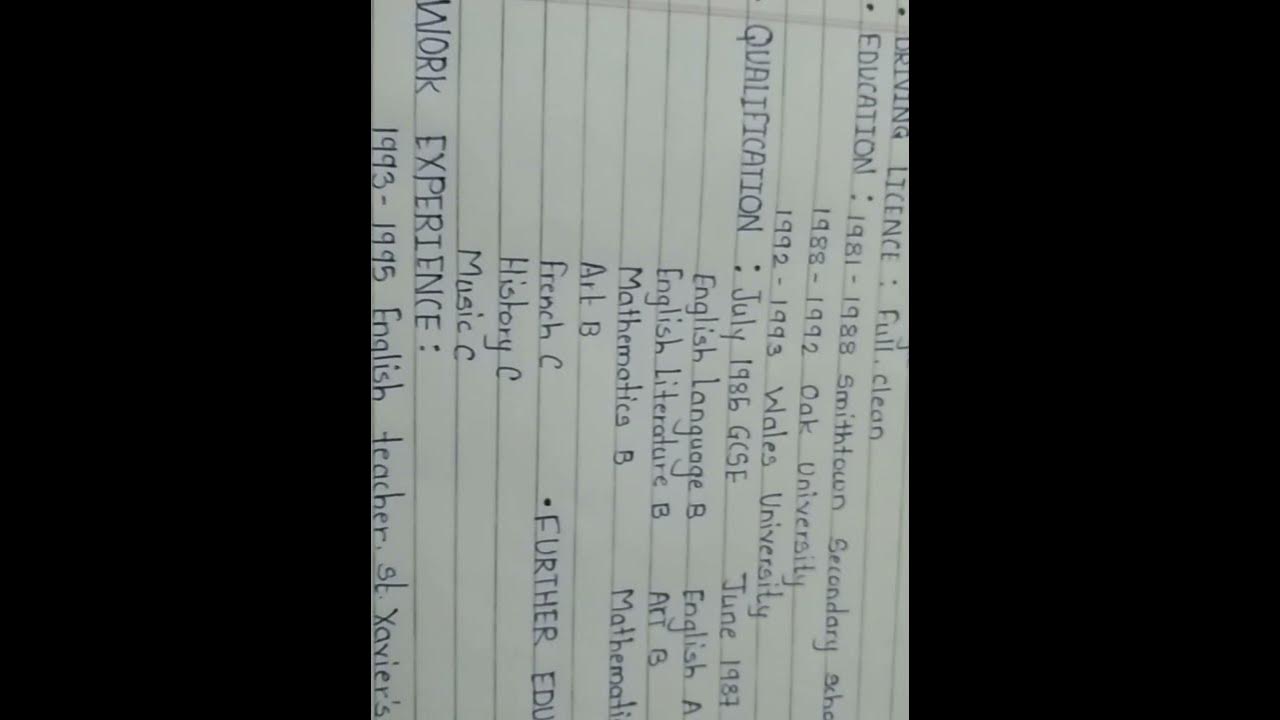 • DRIVING LICENCE : Full, clean
• EDUCATION : 1981 - 1988 Smithtown Secondary scho
1988 - 1992 Oak University
1992 - 1993 Wales University
QUALIFICATION : July 1986 GCSE June 1987
English Language B English A
English Literature B Art B
Mathematics B Mathemati
Art B
French C • FURTHER EDU
History C
Music C
WORK EXPERIENCE :
1993 - 1995 English teacher, St. Xavier's